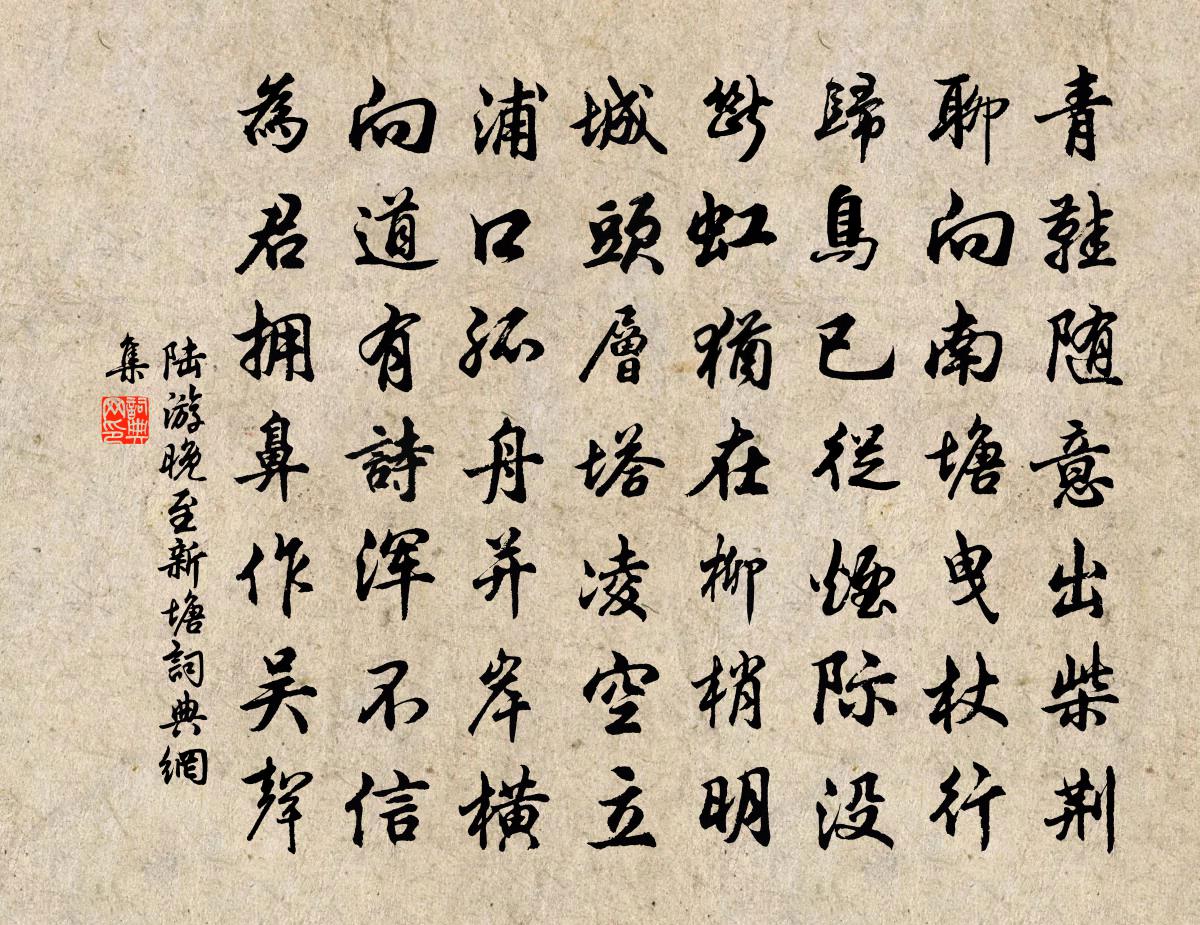 青鞋随意出柴荆
聊向南塘曳杖行
歸鳥已從煙际没
斷虹猶在柳梢明
城頭層塔凌空立
浦口孤舟并岸橫
向道有詩浑不信
為君拥鼻作吴聲
陆游晚至新塘詞典網
集
詞典
网印